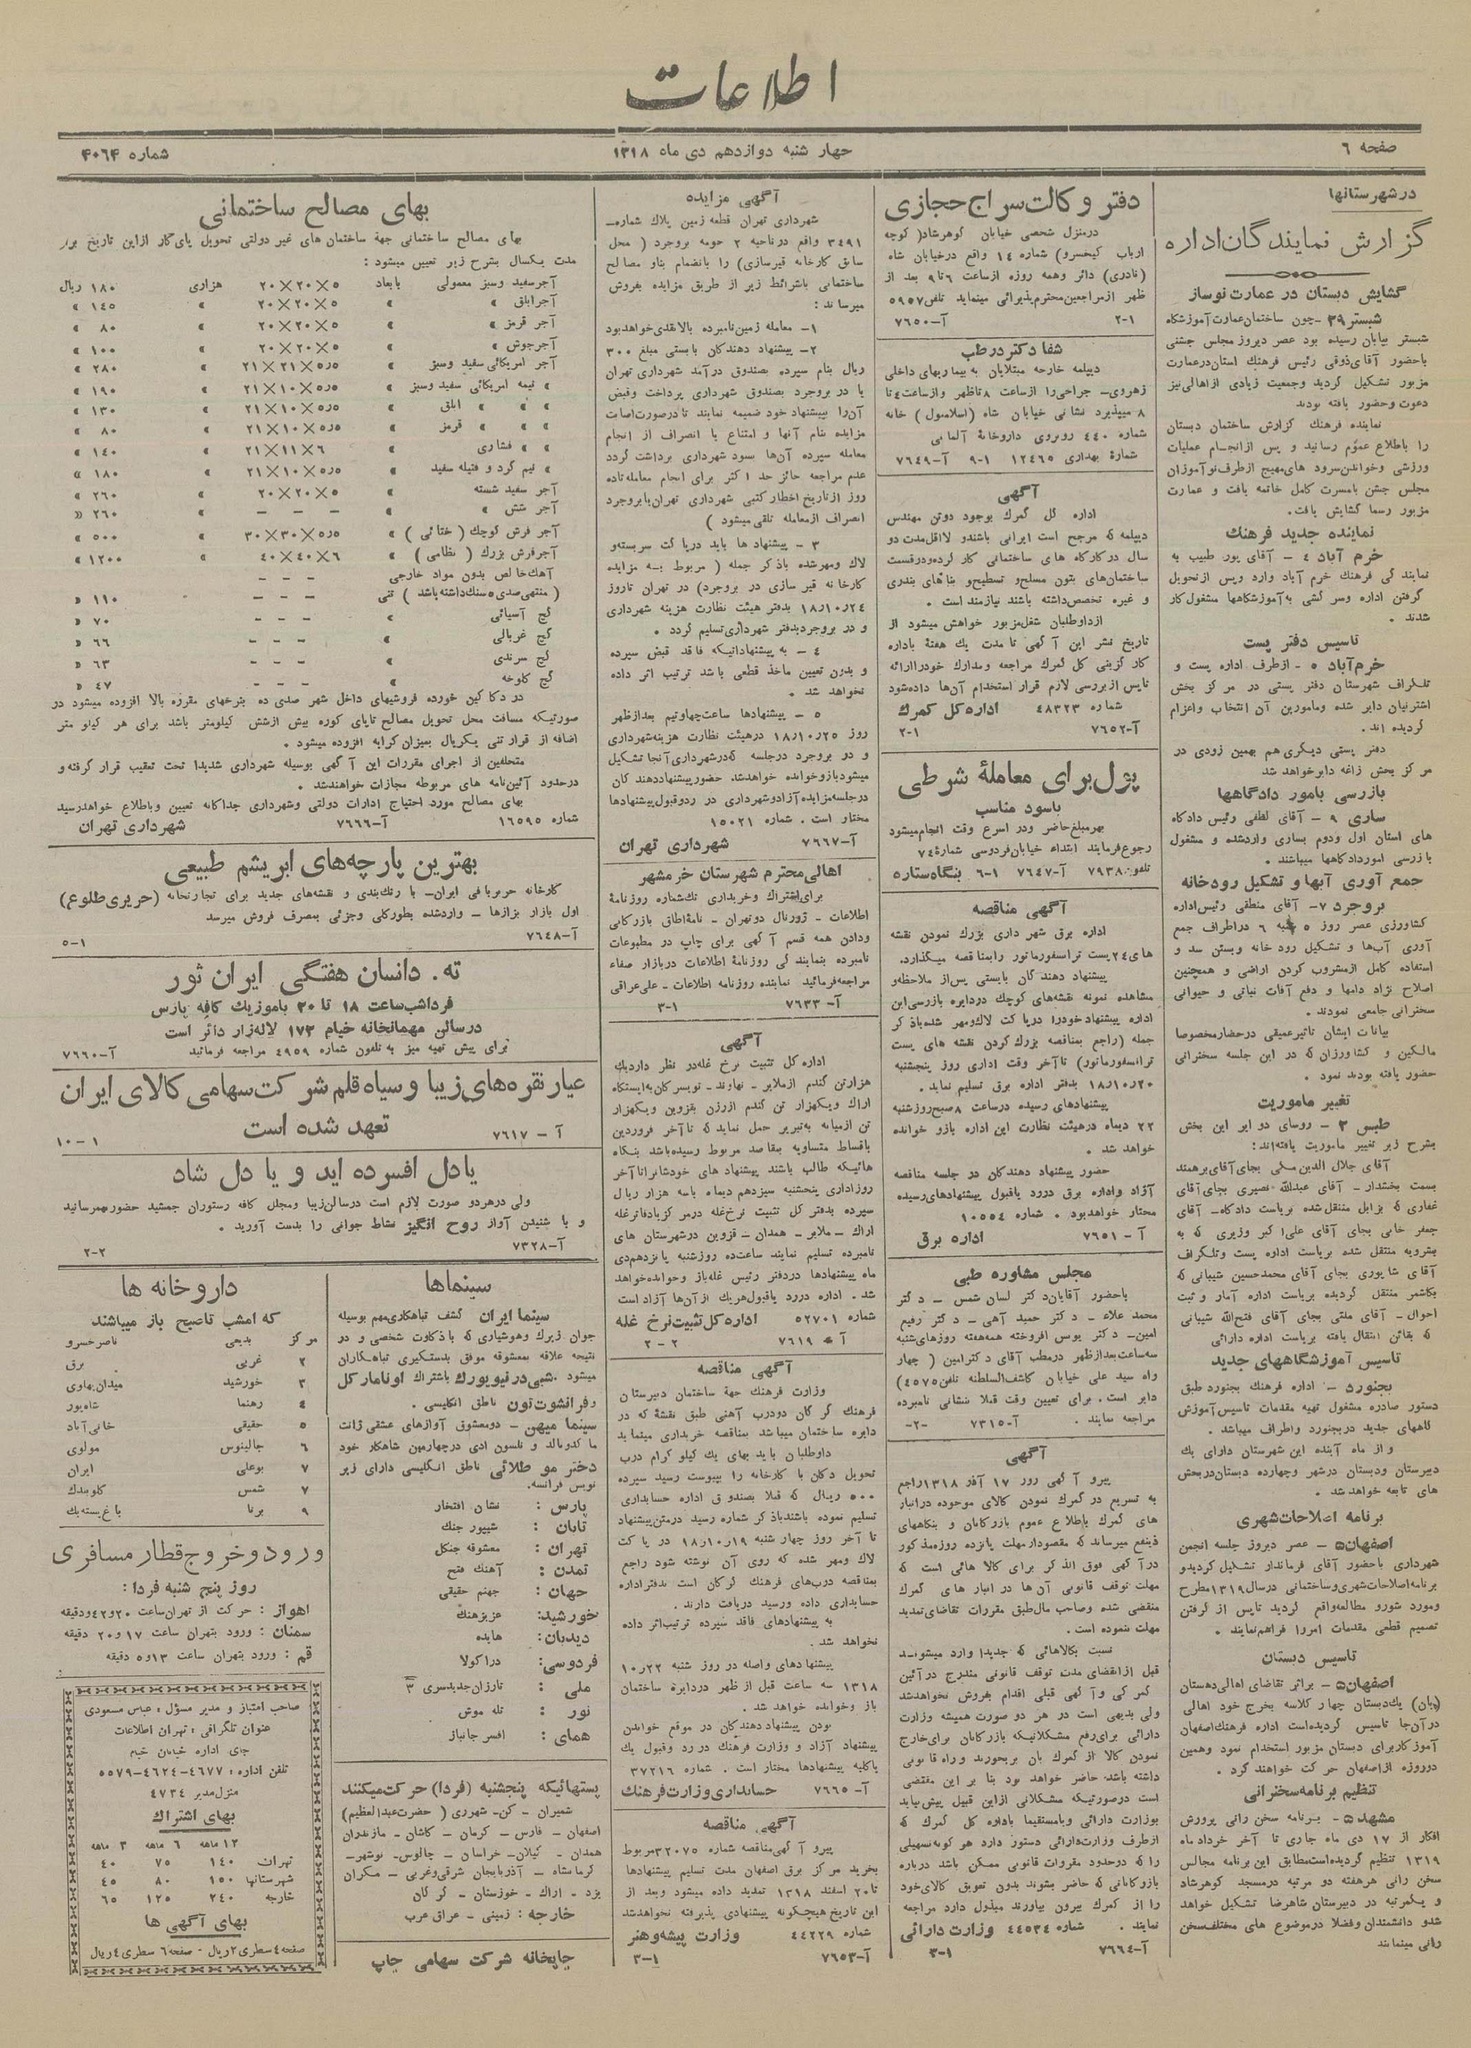 اطلاعات
صفحه ۶
چهار شنبه دوازدهم دی ماه ۱۳۱۸
شماره ۴۰۶۴
در شهرستانها
گزارش نمایندگان اداره
گشایش دبستان در عمارت نوساز
شبستر ۲۹ـ چون ساختمان عمارت آموزشگاه
شبستر بپایان رسیده بود عصر دیروز مجلس جشنی
باحضور آقای ذوقی رئیس فرهنك استان در عمارت
مزبور تشکیل گردید و جمعیت زیادی از اهالی نیز
دعوت وحضور یافته بودند
نماینده فرهنك گزارش ساختمان دبستان
را باطلاع عموم رسانید و پس از انجام عملیات
ورزشی وخواندن سرود های مهیج از طرف نو آموزان
مجلس جشن بامسرت کامل خاتمه یافت و عمارت
مزبور رسما گشایش یافت.
نماینده جدید فرهنك
خرم آباد ٤ - آقای پور طبیب به
نمایند گی فرهنك خرم آباد وارد وپس از تحویل
گرفتن اداره وسر کشی به آموزشگاهها مشغول کار
شدند .
تاسیس دفتر پست
خرم‌آباد ٥ - از طرف اداره پست و
تلگراف شهرستان دفتر پستی در مر کز بخش
اشترنیان دایر شده ومامورین آن انتخاب واعزام
گردیده اند.
دفتر پستی دیگری هم بهمین زودی در
مر کز بخش زاغه دایر خواهد شد
بازرسی بامور دادگاهها
ساری ۹ - آقای لطفی رئیس دادگاه
های استان اول ودوم بساری وارد شده و مشغول
بازرسی امور دادگاهها میباشند .
جمع آوری آبها و تشکیل رودخانه
بروجرد ۷- آقای منطقی رئیس اداره
کشاورزی عصر روز ٥ شنبه ٦ در اطراف جمع
آوری آب‌ها و تشکیل رود خانه وبستن سد و
استفاده کامل از مشروب کردن اراضی و همچنین
اصلاح نژاد دامها و دفع آفات نباتی و حیوانی
سخنرانی جامعی نمودند .
بیانات ایشان تاثیر عمیقی در حضار مخصوصا
مالکین و کشاورزان که در این جلسه سخنرانی
حضور یافته بودند نمود .
تغییر ماموریت
طبس ۲ - روسای دوایر این بخش
بشرح زیر تغییر ماموریت یافته‌اند:
بسمت بخشدار - آقای عبدالله نصیری بجای آقای
غفاری که بزابل منتقل شده بریاست دادگاه- آقای
جعفر خانی بجای آقای علی اکبر وزیری که به
بشرویه منتقل شده بریاست اداره پست وتلگراف
آقای شاپوری بجای آقای محمدحسین شیبانی که
بکاشمر منتقل گردیده بریاست اداره آمار و ثبت
احوال - آقای ملتی بجای آقای فتح‌الله شیبانی
که بقائن انتقال یافته بریاست اداره دارائی
تاسیس آموزشگاههای جدید
بجنورد - اداره فرهنك بجنورد طبق
دستور صادره مشغول تهیه مقدمات تاسیس آموزش
گاههای جدید در بجنورد واطراف میباشد .
و از ماه آینده این شهرستان دارای یك
دبیرستان ودبستان در شهر وچهارده دبستان در بخش
های تابعه خواهد شد .
برنامه اصلاحات شهری
اصفهان ۵ - عصر دیروز جلسه انجمن
شهرداری باحضور آقای فرماندار تشکیل گردید و
برنامه اصلاحات شهری وساختمانی در سال ۱۳۱۹ مطرح
ومورد شور و مطالعه واقع گردید تا پس از گرفتن
تصمیم قطعی مقدمات امر را فراهم نمایند .
تاسیس دبستان
اصفهان ۵ - براثر تقاضای اهالی دهستان
یك دبستان چهار کلاسه بخرج خود اهالی
در آن‌جا تاسیس گردیده‌است اداره فرهنك اصفهان
آموزگار برای دبستان مزبور استخدام نمود وهمین
دو روزه از اصفهان حر کت خواهند کرد .
تنظیم برنامه سخنرانی
مشهد ۵ - برنامه سخن رانی پرورش
افکار از ۱۷ دی ماه جاری تا آخر خرداد ماه
۱۳۱۹ تنظیم گردیده است مطابق این برنامه مجالس
سخن رانی هر هفته دو مرتبه در مسجد گوهرشاد
و یکمرتبه در دبیرستان شاهرضا تشکیل خواهد
شد و دانشمندان وفضلا در موضوع های مختلف سخن
رانی مینمایند
دفتر وکالت سراج حجازی
در منزل شخصی خیابان گوهرشاد ( کوچه
ارباب کیخسرو) شماره ۱٤ واقع در خیابان شاه
(نادری) دائر وهمه روزه از ساعت ٦ تا ۹ بعد از
ظهر از مراجعین محترم پذیرائی مینماید تلفن ٥٩٥٧
۲-۱ آ-۷٦٥٠
شفا دکتر در طب
دیپلمه خارجه مبتلایان به بیماریهای داخلی
زهروی- جراحی را از ساعت ۸ تاظهر و از ساعت ٤ تا
۸ میپذیرد نشانی خیابان شاه (اسلامبول) خانه
شماره ٤٤٠ روبروی داروخانهٔ آلمانی
شمارهٔ بهداری ۱۲٤٦٥ ۹-۱ آ-٧٦٤٩
آگهی
اداره کل گمرك بوجود دوتن مهندس
دیپلمه که مرجح است ایرانی باشند و لااقل مدت دو
سال در کارگاه های ساختمانی کار کرده ودر قسمت
ساختمان‌های بتون مسلح و تسطیح و بناهای بندری
و غیره تخصص داشته باشند نیازمند است .
از داوطلبان شغل مزبور خواهش میشود از
تاریخ نشر این آگهی تا مدت یك هفته باداره
کار گزینی کل گمرك مراجعه و مدارك خود را ارائه
تا پس از بررسی لازم قرار استخدام آن‌ها داده شود
شماره ٤٨٣٢٣ اداره کل گمرك
آ-٧٦٥٢ ۲-۱
پول برای معاملهٔ شرطی
باسود مناسب
بهر مبلغ حاضر ودر اسرع وقت انجام میشود
رجوع فرمایند ابتداء خیابان فردوسی شماره ۷٤
تلفن ۷۹۳۸ آ-٧٦٤٧ ٦-۱ بنگاه ستاره
آگهی مناقصه
اداره برق شهر داری بزرك نمودن نقشه
های ۲٤ پست ترانسفورماتور را بمناقصه میگذارد.
پیشنهاد دهند گان بایستی پس از ملاحظه و
مشاهده نمونه نقشه‌های کوچك در دایره بازرسی این
اداره پیشنهاد خود را در پاکت لاك ومهر شده باذ کر
جمله (راجع بمناقصه بزرك کردن نقشه های پست
ترانسفورماتور) تا آخر وقت اداری روز پنجشنبه
۱۸٫۱۰٫۲۰ بدفتر اداره برق تسلیم نماید .
پیشنهادهای رسیده در ساعت ۸ صبح روز شنبه
۲۲ دیماه در هیئت نظارت این اداره باز و خوانده
خواهد شد .
حضور پیشنهاد دهندگان در جلسه مناقصه
آزاد و اداره برق در رد یا قبول پیشنهادهای رسیده
مختار خواهد بود . شماره ۱۰۵۵٤
آ - ٧٦٥١ اداره برق
مجلس مشاوره طبی
باحضور آقایان دکتر لسان شمس - دکتر
محمد علاء - دکتر حمید آهی - دکتر رفیع
امین- دکتر یوس افروخته همه هفته روزهای شنبه
سه ساعت بعد از ظهر در مطب آقای دکتر امین ( چهار
راه سید علی خیابان کاشف السلطنه تلفن ٤٥٧٥)
دایر است . برای تعیین وقت قبلا بنشانی نامبرده
مراجعه نمایند . آ-٧٣١٥ -۲-
آگهی
پیرو آگهی روز ۱۷ آذر ۱۳۱۸ راجع
به تسریع در گمرك نمودن کالای موجوده در انبار
های گمرك باطلاع عموم بازرگانان و بنگاههای
ذینفع میرساند که مقصود از مهلت پانزده روزه مذکور
در آگهی فوق الذکر برای کالا هائی است که
مهلت توقف قانونی آن‌ها در انبار های گمرك
منقضی شده وصاحب مال طبق مقررات تقاضای تمدید
مهلت ننموده است .
نسبت بکالاهائی که جدیدا وارد میشونــد
قبل از انقضای مدت توقف قانونی مندرج در آئین
گمر کی و آگهی قبلی اقدام بفروش نخواهد شد
ولی بدیهی است در هر دو صورت همیشه وزارت
دارائی برای رفع مشکلاتیکه بازرگانان برای خارج
نمودن کالا از گمرك بآن برخورند و راه قانونی
داشته باشد حاضر خواهد بود بنا بر این مقتضی
است در صورتیکه مشکلاتی از این قبیل پیش بیاید
بوزارت دارائی ویا مستقیما باداره کل گمرك که
از طرف وزارت دارائی دستور دارد هر گونه تسهیلی
را که در حدود مقررات قانونی ممکن باشد درباره
بازرگانانی که حاضر بشوند بدون تعویق کالای خود
را از گمرك بیرون بیاورند مبذول دارد مراجعه
نمایند . شماره ٤٤٥٣٤ وزارت دارائی
آ-٧٦٦٤ ۳-۱
آگهی مزایده
شهرداری تهران قطعه زمین پلاك شماره
٣٤٩١ واقع در ناحیه ۲ حومه بروجرد ( محل
سابق کارخانه قیر سازی) را بانضمام بنا و مصالح
ساختمانی باشرائط زیر از طریق مزایده بفروش
میرساند :
۱- معامله زمین نامبرده بالا نقدی خواهد بود
۲- پیشنهاد دهندگان بایستی مبلغ ۳۰۰
ریال بنام سپرده بصندوق درآمد شهرداری تهران
یا در بروجرد بصندوق شهرداری پرداخت وقبض
آن‌را بپیشنهاد خود ضمیمه نمایند تا در صورت اصابت
مزایده بنام آنها و امتناع یا انصراف از انجام
معامله سپرده آن‌ها بسود شهرداری برداشت گردد
عدم مراجعه حائز حد اکثر برای انجام معامله تا ده
روز از تاریخ اخطار کتبی شهرداری تهران یا بروجرد
انصراف از معامله تلقی میشود )
۳ - پیشنهاد ها باید در پاکت سربسته و
لاك ومهر شده باذکر جمله ( مربوط به مزایده
کارخانه قیر سازی در بروجرد) در تهران تا روز
۱۸٫۱۰٫۲٤ بدفتر هیئت نظارت هزینه شهرداری
و در بروجرد بدفتر شهرداری تسلیم گردد .
٤ - به پیشنهاداتیکه فاقد قبض سپرده
و بدون تعیین ماخذ قطعی باشد ترتیب اثر داده
نخواهد شد .
٥ - پیشنهادها ساعت چهار ونیم بعد از ظهر
روز ۱۸٫۱۰٫۲٥ در هیئت نظارت هزینه شهرداری
و در بروجرد در جلسه که در شهرداری آنجا تشکیل
میشود باز و خوانده خواهد شد حضور پیشنهاد دهند گان
در جلسه مزایده آزاد و شهرداری در رد و قبول پیشنهادها
مختار است . شماره ۱۵۰۲۱
آ-٧٦٦٧ شهرداری تهران
اهالی محترم شهرستان خرمشهر
برای اشتراك وخریداری تك شماره روزنامهٔ
اطلاعات - ژورنال دو تهران - نامهٔ اطاق بازرگانی
ودادن همه قسم آگهی برای چاپ در مطبوعات
نامبرده بنمایند گی روزنامهٔ اطلاعات در بازار صفاء
مراجعه فرمائید نماینده روزنامه اطلاعات - علی عراقی
آ - ٧٦٣٣ ۳-۱
آگهی
اداره کل تثبیت نرخ غله در نظر دارد یك
هزار تن گندم از ملایر - نهاوند - تویسرکان به ایستگاه
اراك ویکهزار تن گندم از رزن بقزوین و یکهزار
تن از میانه به تبریز حمل نماید که تا آخر فروردین
باقساط متساویه بمقاصد مربوط رسیده باشد بنگاه
هائیکه طالب باشند پیشنهاد های خودشان را تا آخر
روز اداری پنجشنبه سیزدهم دیماه باسه هزار ریال
سپرده بدفتر کل تثبیت نرخ غله در مرکز یا دفاتر غله
اراك - ملایر - همدان - قزوین در شهرستان های
نامبرده تسلیم نمایند ساعت ده روز شنبه پانزدهم دی
ماه پیشنهادها در دفتر رئیس غله باز و خوانده خواهد
شد . اداره در رد یا قبول هر یك از آن‌ها آزاد است
شماره ۵۲۷۰۱ اداره کل تثبیت نرخ غله
آ - ٧٦١٩ ۲ - ۲
آگهی مناقصه
وزارت فرهنك جهة ساختمان دبیرستان
فرهنك گر گان دو درب آهنی طبق نقشهٔ که در
دایره ساختمان میباشد بمناقصه خریداری مینماید
داوطلبان باید بهای یك کیلو گرام درب
تحویل دکان یا کارخانه را بپیوست رسید سپرده
۵۰۰ ریال که قبلا بصندوق اداره حسابداری
تسلیم نموده باشند باذکر شماره رسید در متن پیشنهاد
تا آخر روز چهار شنبه ۱۸٫۱۰٫۱۹ در پاکت
لاك ومهر شده که روی آن نوشته شود راجع
بمناقصه درب‌های فرهنك گرگان است بدفتر اداره
حسابداری داده ورسید دریافت دارند.
به پیشنهادهای فاقد سپرده ترتیب اثر داده
نخواهد شد .
پیشنهادهای واصله در روز شنبه ۱۰٫۲۲
۱۳۱۸ سه ساعت قبل از ظهر در دایره ساختمان
باز وخوانده خواهد شد .
بودن پیشنهاد دهندگان در موقع خواندن
پیشنهاد آزاد و وزارت فرهنك در رد وقبول یك
یا کلیه پیشنهادها مختار است . شماره ۳۷۲۱٦
آ- ٧٦٦٥ حسابداری وزارت فرهنك
آگهی مناقصه
پیرو آگهی مناقصه شماره ۳۲۰۷۵ مربوط
بخرید مرکز برق اصفهان مدت تسلیم پیشنهادها
تا ۲۰ اسفند ۱۳۱۸ تمدید داده میشود وبعد از
این تاریخ هیچگونه پیشنهادی پذیرفته نخواهد شد
شماره ٤٤٢٢٩ وزارت پیشه و هنر
آ-٧٦٥٣ ۳-۱
بهای مصالح ساختمانی
بهای مصالح ساختمانی جهة ساختمان های غیر دولتی تحویل پای کار از این تاریخ برای
مدت یکسال بشرح زیر تعیین میشود :
آجر سفید وسبز معمولی بابعاد ۵×۲۰×۲۰ هزاری ۱۸۰ ریال
آجر ابلق » ۵×۲۰×۲۰ » ۱٤۵ »
آجر قرمز » ۵×۲۰×۲۰ » ۸۰ »
آجر جوش » ۵×۲۰×۲۰ » ۱۰۰ »
آجر امریکائی سفید وسبز » ۵ر۵×۲۱×۲۱ » ۲۸۰ »
» نیمه امریکائی سفید وسبز » ۵ر۵×۱۰×۲۱ » ۱۹۰ »
» » » ابلق » ۵ر۵×۱۰×۲۱ » ۱۳۰ »
» » » قرمز » ۵ر۵×۱۰×۲۱ » ۸۰ »
» » فشاری » ٦×۱۱×۲۱ » ۱٤۰ »
» نیم گرد و فتیله سفید » ۵ر۵×۱۰×۲۱ » ۱۸۰ »
آجر سفید شسته » ۵×۲۰×۲۰ » ۲٦۰ »
آجر شش » - - - » ۲٦۰ »
آجر فرش کوچك ( ختائی ) » ۵ر۵×۳۰×۳۰ » ۵۰۰ »
آجر فرش بزرك ( نظامی ) » ٦×٤۰×٤۰ » ۱۲۰۰ »
آهك خالص بدون مواد خارجی - - -
( منتهی صدی ۵ سنك داشته باشد ) تنی - - - ۱۱۰ »
گچ آسیائی » - - - ۷۰ »
گچ غربالی » - - - ٦٦ »
گچ سرندی » - - - ٦۳ »
گچ کلوخه » - - - ٤۷ »
در دکاکین خورده فروشیهای داخل شهر صدی ده بنرخهای مقرره بالا افزوده میشود در
صورتیکه مسافت محل تحویل مصالح تا پای کوره بیش از شش کیلومتر باشد برای هر کیلو متر
اضافه از قرار تنی یکریال بمیزان کرایه افزوده میشود .
متخلفین از اجرای مقررات این آگهی بوسیله شهرداری شدیدا تحت تعقیب قرار گرفته و
در حدود آئین‌نامه های مربوطه مجازات خواهند شد .
بهای مصالح مورد احتیاج ادارات دولتی و شهرداری جداگانه تعیین وباطلاع خواهد رسید
شماره ۱٦۵۹۵ آ-٧٦٦٦ شهرداری تهران
بهترین پارچه‌های ابریشم طبیعی
کارخانه حریر بافی ایران- با رنك‌بندی و نقشه‌های جدید برای تجارتخانه (حریری طلوع)
اول بازار بزازها - وارد شده بطور کلی وجزئی بمصرف فروش میرسد
آ-٧٦٤٨ ۵-۱
ته. دانسان هفتگی ایران ثور
فردا شب ساعت ۱۸ تا ۲۰ باموزیك کافه پارس
در سالن مهمانخانه خیام ۱۷۳ لاله‌زار دائر است
برای پیش تهیه میز به تلفون شماره ٤٩٥٩ مراجعه فرمائید آ-٧٦٦٠
عیار نقره‌های زیبا و سیاه قلم شرکت سهامی کالای ایران
تعهد شده است آ - ٧٦١٧ ۱۰-۱
یا دل افسرده اید و یا دل شاد
ولی در هر دو صورت لازم است در سالن زیبا ومجلل کافه رستوران جمشید حضور بهمرسانید
و با شنیدن آواز روح انگیز نشاط جوانی را بدست آورید .
آ-٧٣٢٨ ۲-۲
سینماها
سینما ایران کشف تباهکاری مهم بوسیله
جوان زیرك وهوشیاری که باذکاوت شخصی و در
نتیجه علاقه بمعشوقه موفق بدستگیری تباهکاران
میشود . شبی در نیویورك باشتراك اونا مارکل
وفرانشوت تون ناطق انگلیسی .
سینما میهن - دو معشوق آوازهای عشقی ژانت
ماکدونالد و نلسون ادی در چهارمین شاهکار خود
دختر مو طلائی ناطق انگلیسی دارای زیر
نویس فرانسه.
پارس : نشان افتخار
تابان : شیپور جنك
تهران : معشوقه جنگل
تمدن : آهنك فتح
جهان : جهنم حقیقی
خورشید: عزیز هنك
دیدبان: هایده
فردوسی: دراکولا
ملی : تارزان جدید سری ۳
نور : تله موش
همای : افسر جانباز
پستهائیکه پنجشنبه (فردا) حرکت میکنند
شمیران - کن- شهرری ( حضرت عبدالعظیم)
اصفهان - فارس - کرمان - کاشان - مازندران
همدان - گیلان- خراسان - چالوس- نوشهر-
کرمانشاه - آذربایجان شرقی و غربی - مکران
یزد - اراك - خوزستان - گرگان
خارجه : زمینی - عراق عرب
چاپخانه شرکت سهامی چاپ
داروخانه ها
که امشب تاصبح باز میباشند
مرکز بدیعی ناصرخسرو
۲ غربی برق
۳ خورشید میدان بهاوی
٤ رهنما شاه‌پور
۵ حقیقی خانی‌آباد
٦ جالینوس مولوی
۷ بوعلی ایران
۷ شمس گلوبندك
۹ برنا باغ پسته‌بك
ورود و خروج قطار مسافری
روز پنج شنبه فردا :
اهواز : حرکت از تهران ساعت ۲۰ و ٤۲ دقیقه
سمنان : ورود بتهران ساعت ۱۷ و ۲۰ دقیقه
قم : ورود بتهران ساعت ۱۳ و ۵ دقیقه
صاحب امتیاز و مدیر مسؤل : عباس مسعودی
عنوان تلگرافی : تهران اطلاعات
جای اداره خیابان خیام
تلفن اداره : ٤٦٧٧-٤٦٢٤-٥٥٧٩
منزل مدیر ٤٧٣٤
بهای اشتراك
۱۲ ماهه ٦ ماهه ۳ ماهه
تهران ۱٤۰ ۷۵ ٤۰
شهرستانها ۱۵۰ ۸۰ ٤۵
خارجه ۲٤۰ ۱۲۵ ٦۵
بهای آگهی ها
صفحه ٤ سطری ۲ ریال - صفحه ٦ سطری ٤ ریال